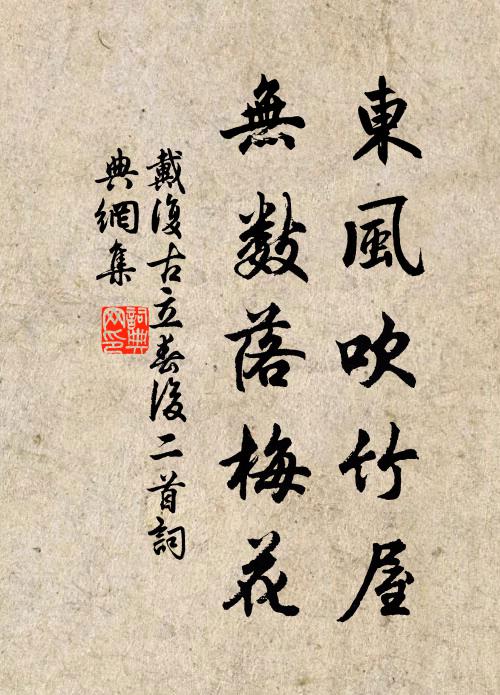 東風吹竹屋
無數落梅花
戴復古立春後二首詞
典網集
詞典
网印